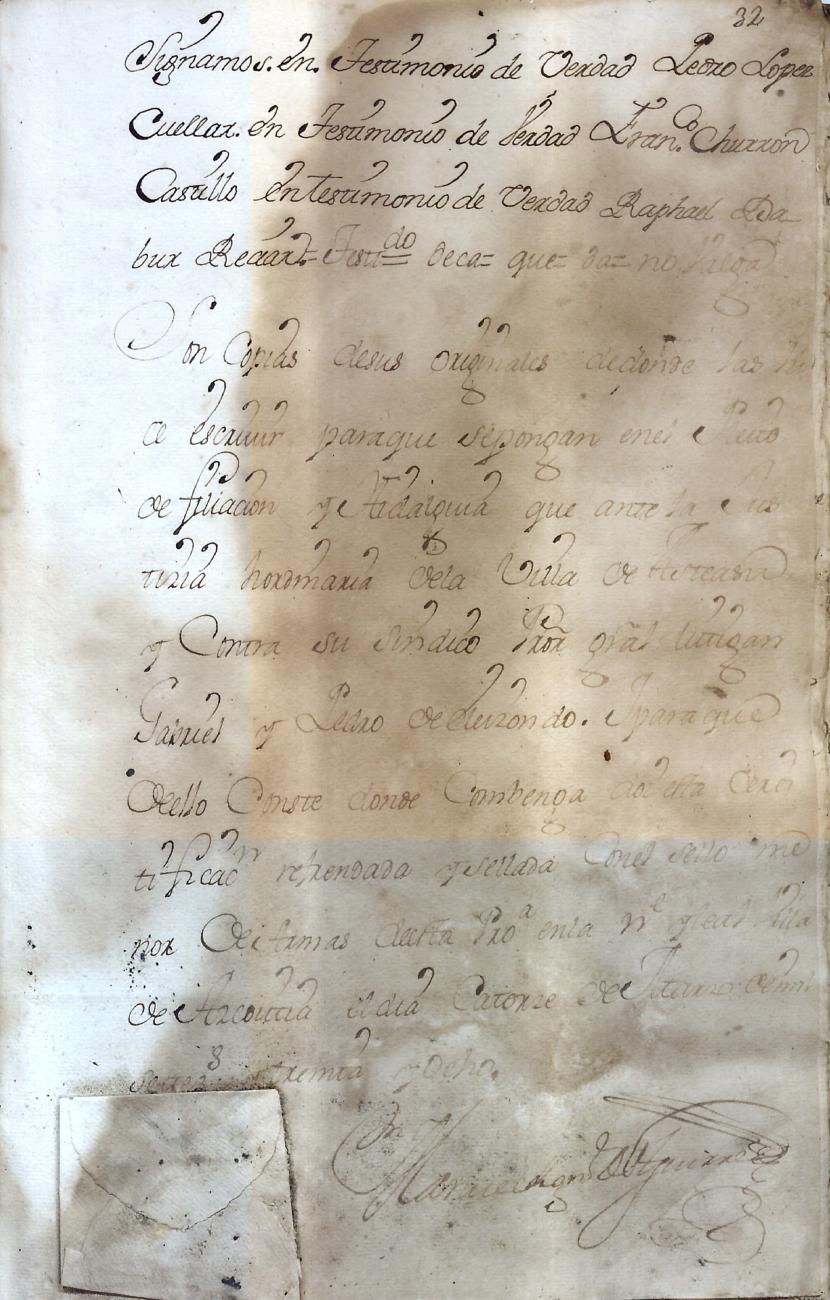 32
Signamos. en. Testimonio de Verdad Pedro Lopez
Cuellar. en Testimonio de Verdad Fran.co Churron
Castillo en testimonio de Verdad Raphael
bur Recart= Testdo deca= que= da= no Valga
Son Copias desus originales dedonde las
ce escriuir paraque sepongan enel Pleito
de filiacion y Hidalguia que ante la Jus
tizia hordinaria dela Villa de Asteasu
y Contra su sindico Pror gral litigan
Gabriel y Pedro de Elizondo. Iparaque
deello Conste donde Combenga doi esta Cer
tificaon refrendada y sellada Conel sello me
nor de Armas desta Proa enla Ne y leal Villa
de Azcoitia el dia Catorze de de mil
setezs y treinta y Ocho.